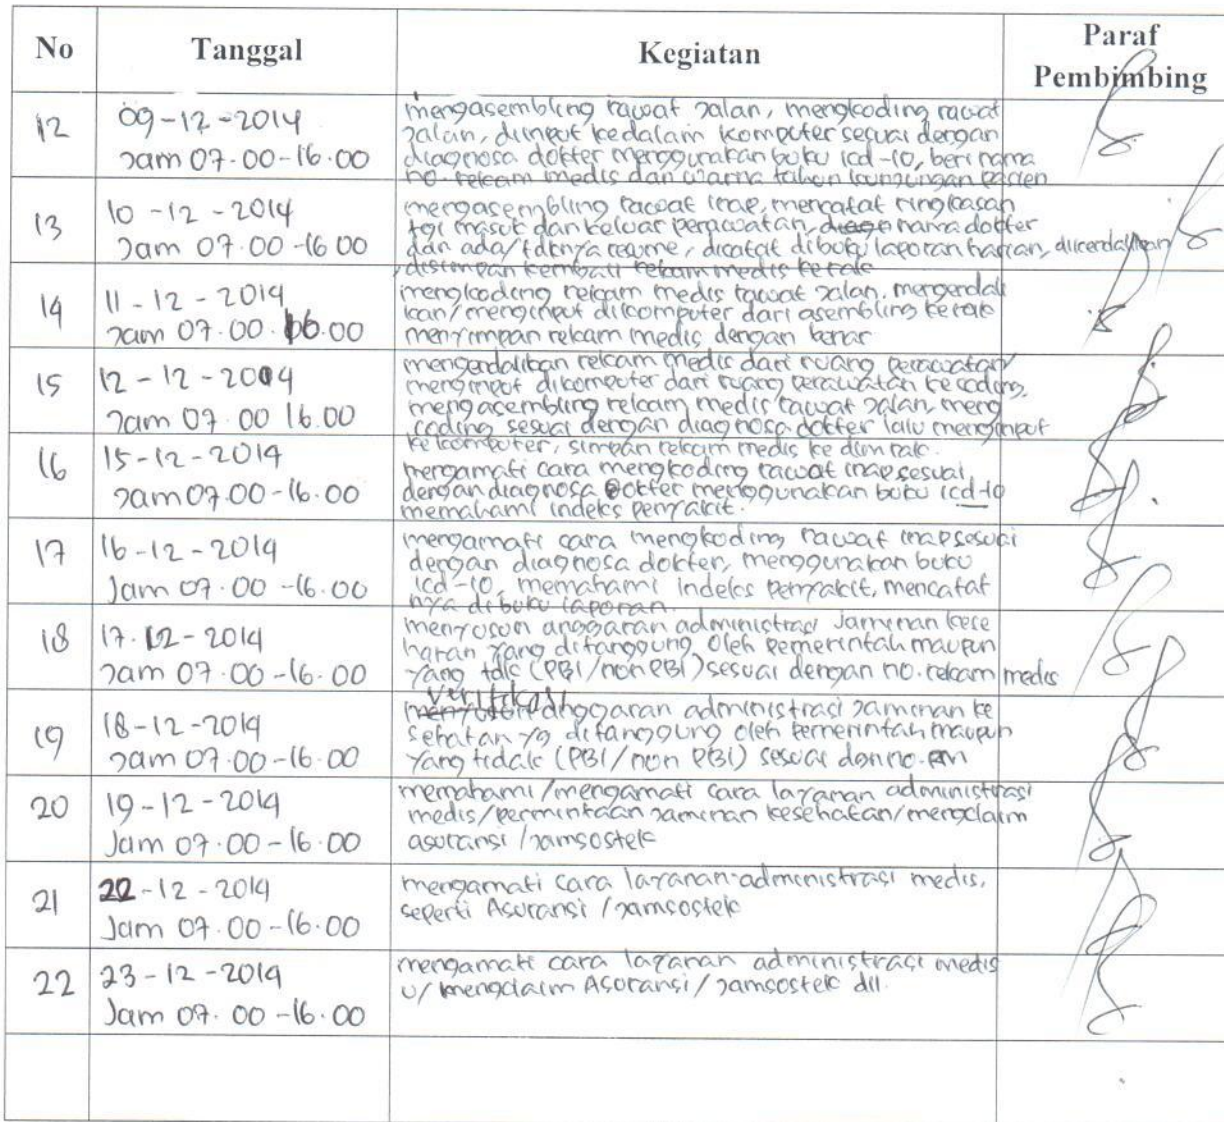 No Tanggal Kegiatan Paraf Pembimbing
12 09-12-2014 Jam 07.00-16.00
mengasembling rawat jalan, mengkoding rawat
jalan, diinput kedalam komputer sesuai dengan
diagnosa dokter menggunakan buku icd-10, beri nama
no. rekam medis dan warna tahun kunjungan pasien
13 10-12-2014 Jam 07.00-16.00
mengasembling rawat inap, mencatat ringkasan
tgl masuk dan keluar perawatan, nama dokter
dan ada/tdknya resume, dicatat dibuku laporan harian, dikendalikan
, disimpan kembali rekam medis ke rak
14 11-12-2014 Jam 07.00.16.00
mengkoding rekam medis rawat jalan, mengendali
kan/menginput dikomputer dari asembling ke rak
menyimpan rekam medis dengan benar
15 12-12-2014 Jam 07.00 16.00
mengendalikan rekam medis dari ruang perawatan/
menginput dikomputer dari ruang perawatan ke coding,
mengasembling rekam medis rawat jalan, meng
coding sesuai dengan diagnosa dokter lalu menginput
ke komputer, simpan rekam medis ke dlm rak.
16 15-12-2014 Jam 07.00-16.00
mengamati cara mengkoding rawat inap sesuai
dengan diagnosa dokter menggunakan buku icd-10
memahami indeks penyakit.
17 16-12-2014 Jam 07.00-16.00
mengamati cara mengkoding rawat inap sesuai
dengan diagnosa dokter, menggunakan buku
icd-10, memahami indeks penyakit, mencatat
nya dibuku laporan.
18 17.12-2014 Jam 07.00-16.00
menyusun anggaran administrasi jaminan kese
hatan yang ditanggung oleh pemerintah maupun
yang tdk (PBI/non PBI) sesuai dengan no. rekam medis
19 18-12-2014 Jam 07.00-16.00
verifikasi
menyusun anggaran administrasi jaminan ke
sehatan yg ditanggung oleh pemerintah maupun
yang tidak (PBI/non PBI) sesuai no.RM
20 19-12-2014 Jam 07.00-16.00
memahami/mengamati cara layanan administrasi
medis/permintaan jaminan kesehatan/mengclaim
asuransi/jamsostek
21 22-12-2014 Jam 07.00-16.00
mengamati cara layanan administrasi medis,
seperti Asuransi/jamsostek
22 23-12-2014 Jam 07.00-16.00
mengamati cara layanan administrasi medis
u/ mengclaim Asuransi/jamsostek dll.